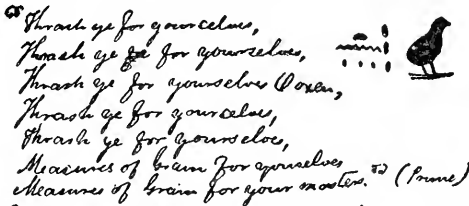 Thrash ye for yourcelves,
Thrash ye for yourzelves,
Thrash ye for yourselves Oxen,
Thrash ye for yourcelves,
Thrash ye for yourseloes,
Measures of Grain for yourselves
Measures of Grain for your masters.